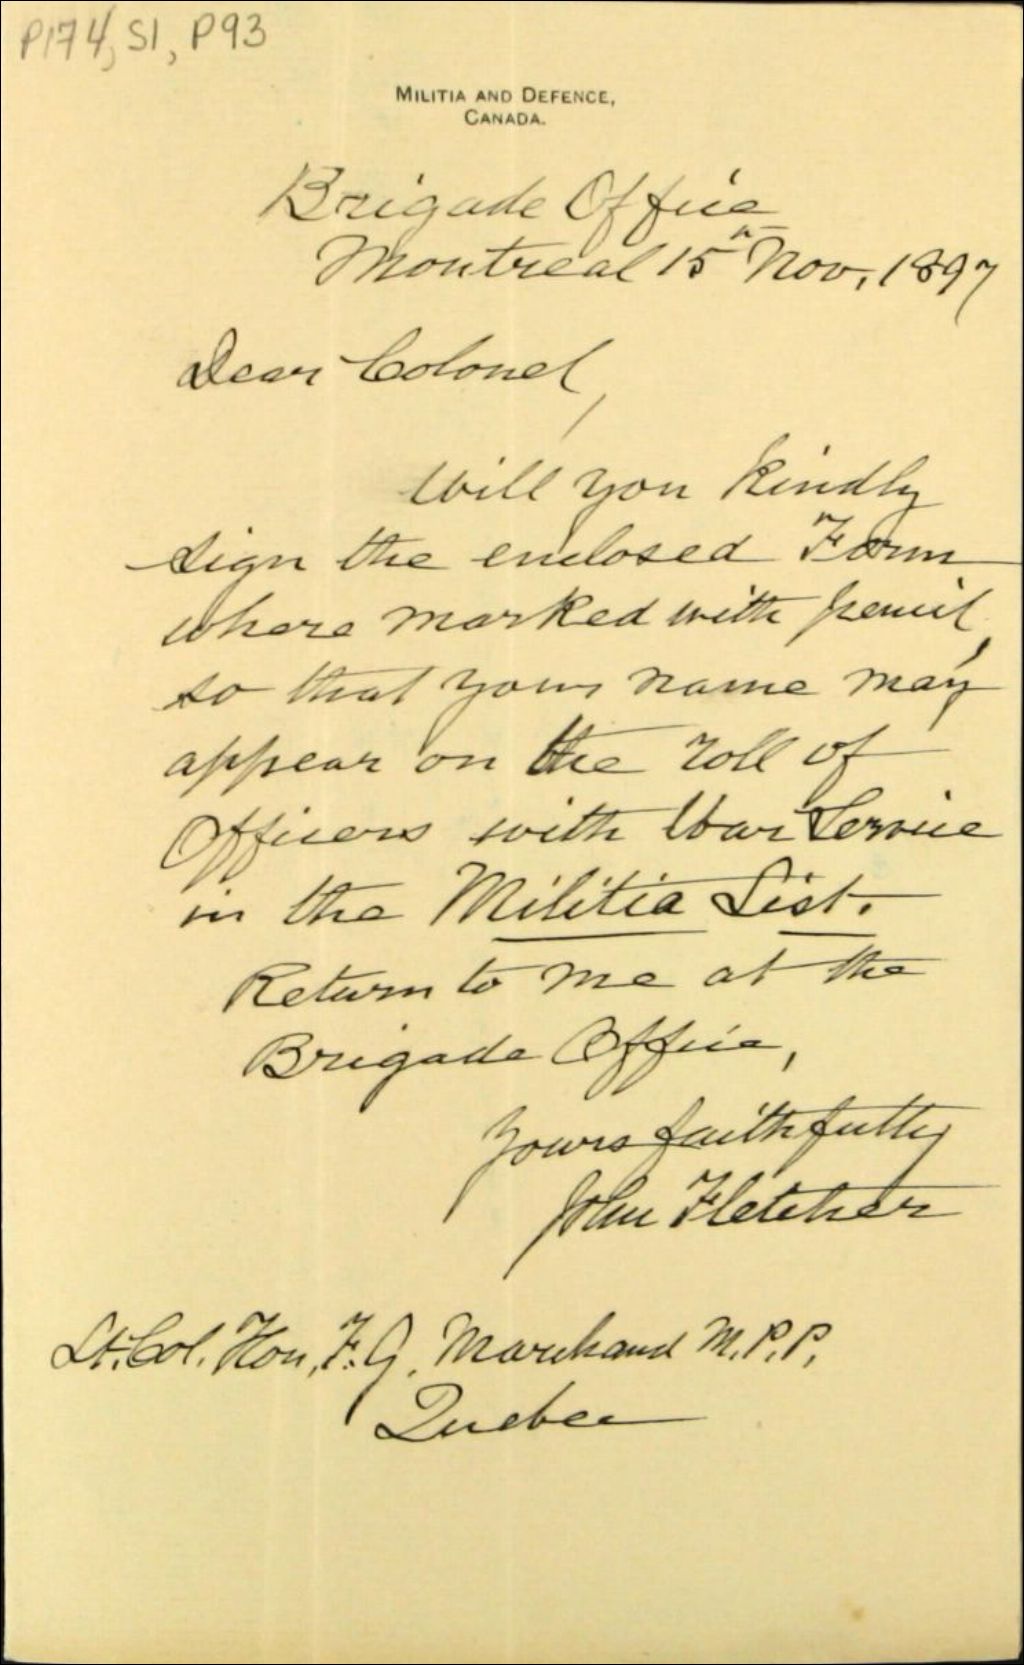 P174, S1, P93
MILITIA AND DEFENCE,
CANADA.
Brigade Office
Montreal 15th Nov, 1897
Dear Colonel,
Will you kindly
sign the enclosed Form
where marked with pencil,
so that your name may
appear on the roll of
Officers with War Service
in the Militia List.
Return to me at the
Brigade Office,
Yours faithfully
John Fletcher
Lt. Col. Hon, F. G. Marchand M.P.P.
Quebec